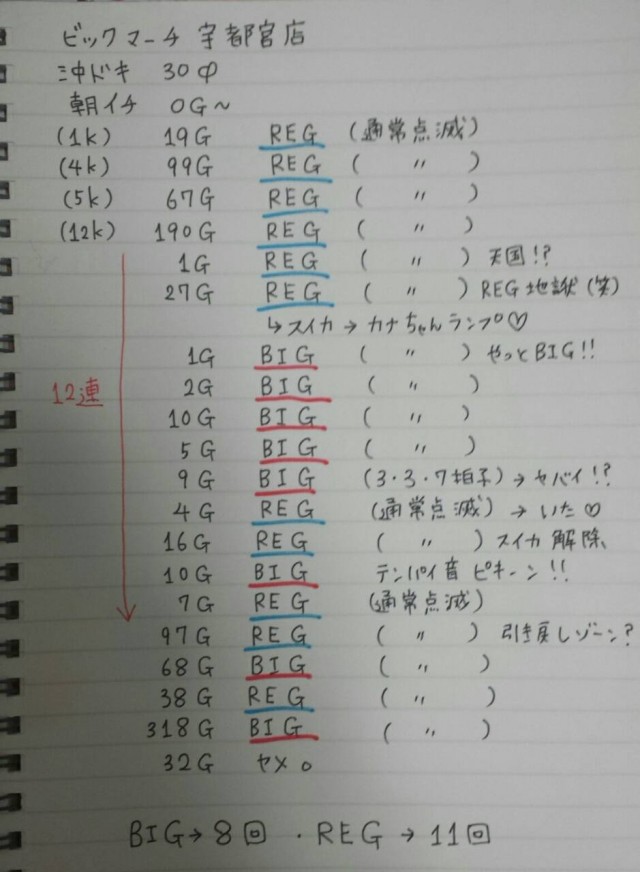 ビックマーチ 宇都宮店
沖ドキ 30Φ
朝イチ 0G~
(1k) 19G REG (通常点滅)
(4k) 99G REG ( 〃 )
(5k) 67G REG ( 〃 )
(12k) 190G REG ( 〃 )
1G REG ( 〃 ) 天国!?
27G REG ( 〃 ) REG地獄(笑)
↳スイカ→カナちゃんランプ♡
1G BIG ( 〃 ) やっとBIG!!
2G BIG ( 〃 )
12連
10G BIG ( 〃 )
5G BIG ( 〃 )
9G BIG (3・3・7拍子)→ヤバイ!?
4G REG (通常点滅)→いた♡
16G REG ( 〃 ) スイカ解除、
10G BIG テンパイ音 ピキーン!!
7G REG (通常点滅)
97G REG ( 〃 ) 引き戻しゾーン?
68G BIG ( 〃 )
38G REG ( 〃 )
318G BIG ( 〃 )
32G ヤメ。
BIG→8回・REG→11回